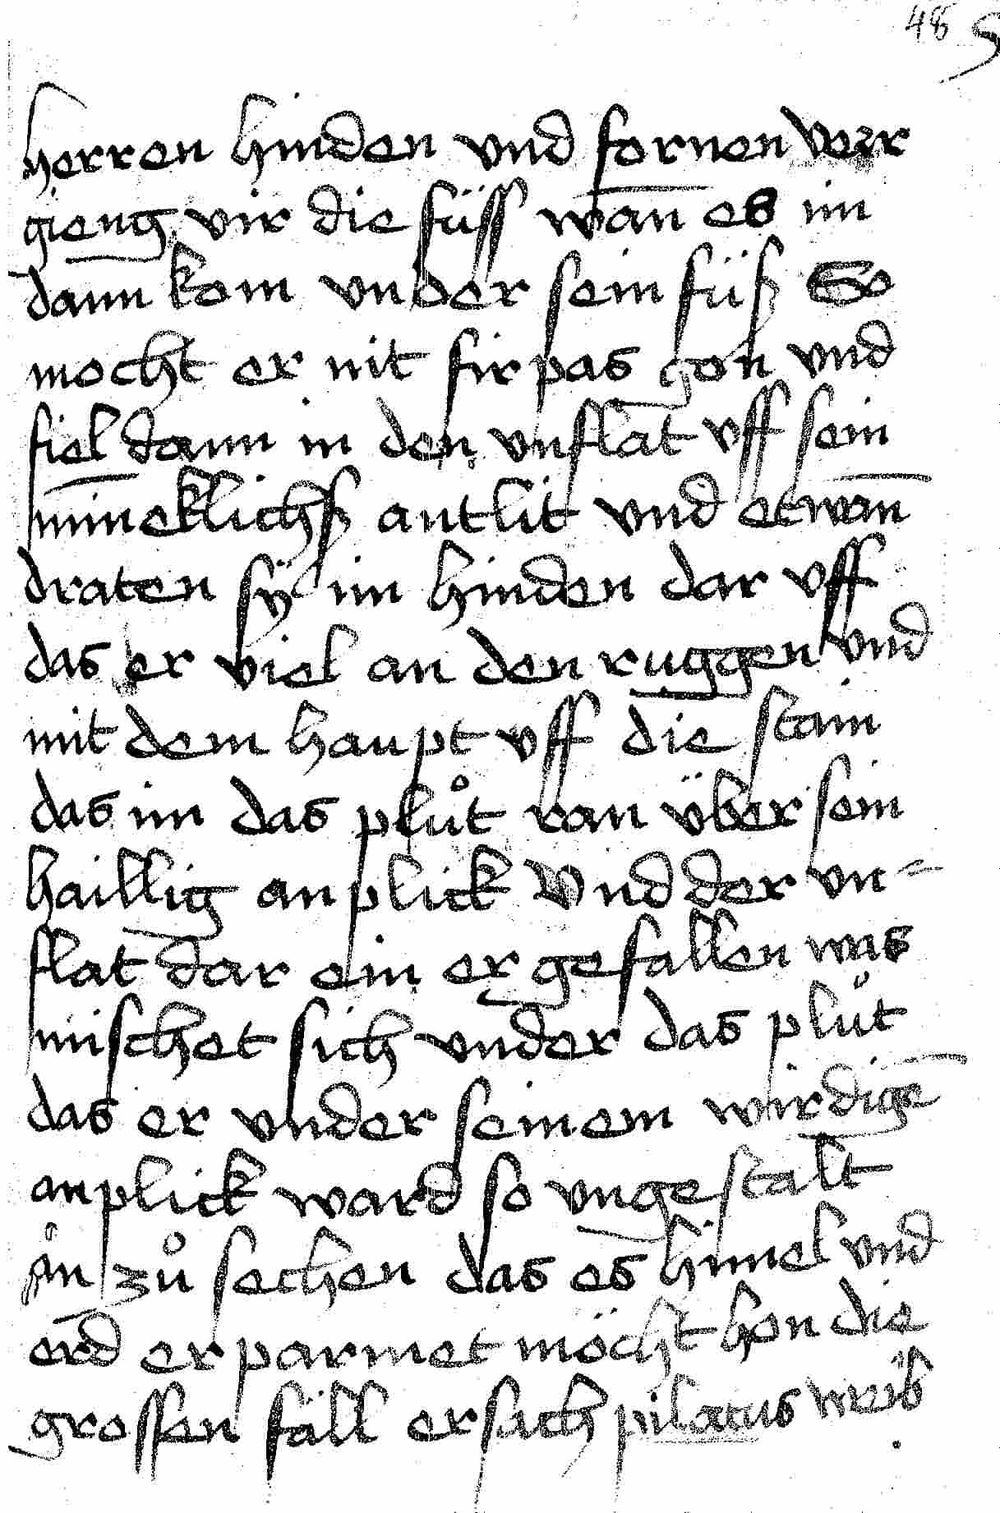 48
herren hinden vnd fornen verr
gieng vir die füss wan̄ es im
dann kom vnder sein füß So
mocht er nit fir pas gon vnd
fiel dann in den vnflat vff sein
mineklichß antlit vnd etwan̄
draten sÿ im hinden dar vff
das er viel an den ruggen vnd
mit dem haupt vff die stain
das im das plůt ran über sein
haillig an plick Vnd der vn=
flat dar ein er gefallen was
mischet sich vnder das plůt
das er vnder seinem wirdigē
an plick ward so vngestalt
an zů sechen das es himel vnd
erd er parmet möcht hon die
grossen fäll ersach pilatus weib